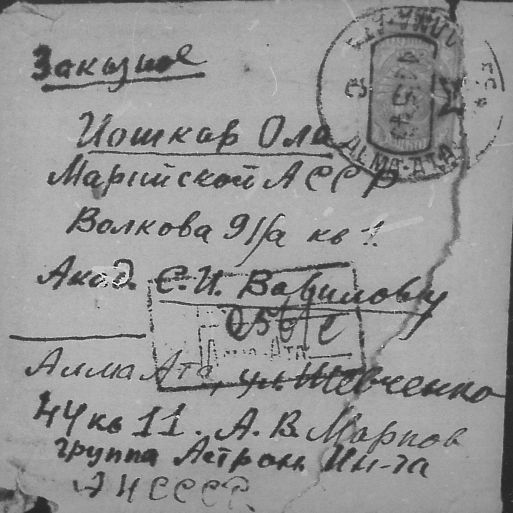 Заказное
Йошкар Ола
Марийской АССР
Волкова 91/а кв 1.
Акад. С. И. Вавилову
АЛМА-АТА
Алма Ата, ул. Шевченко
44 кв 11. А. В. Марков
группа Астроном. Ин-та
АН СССР